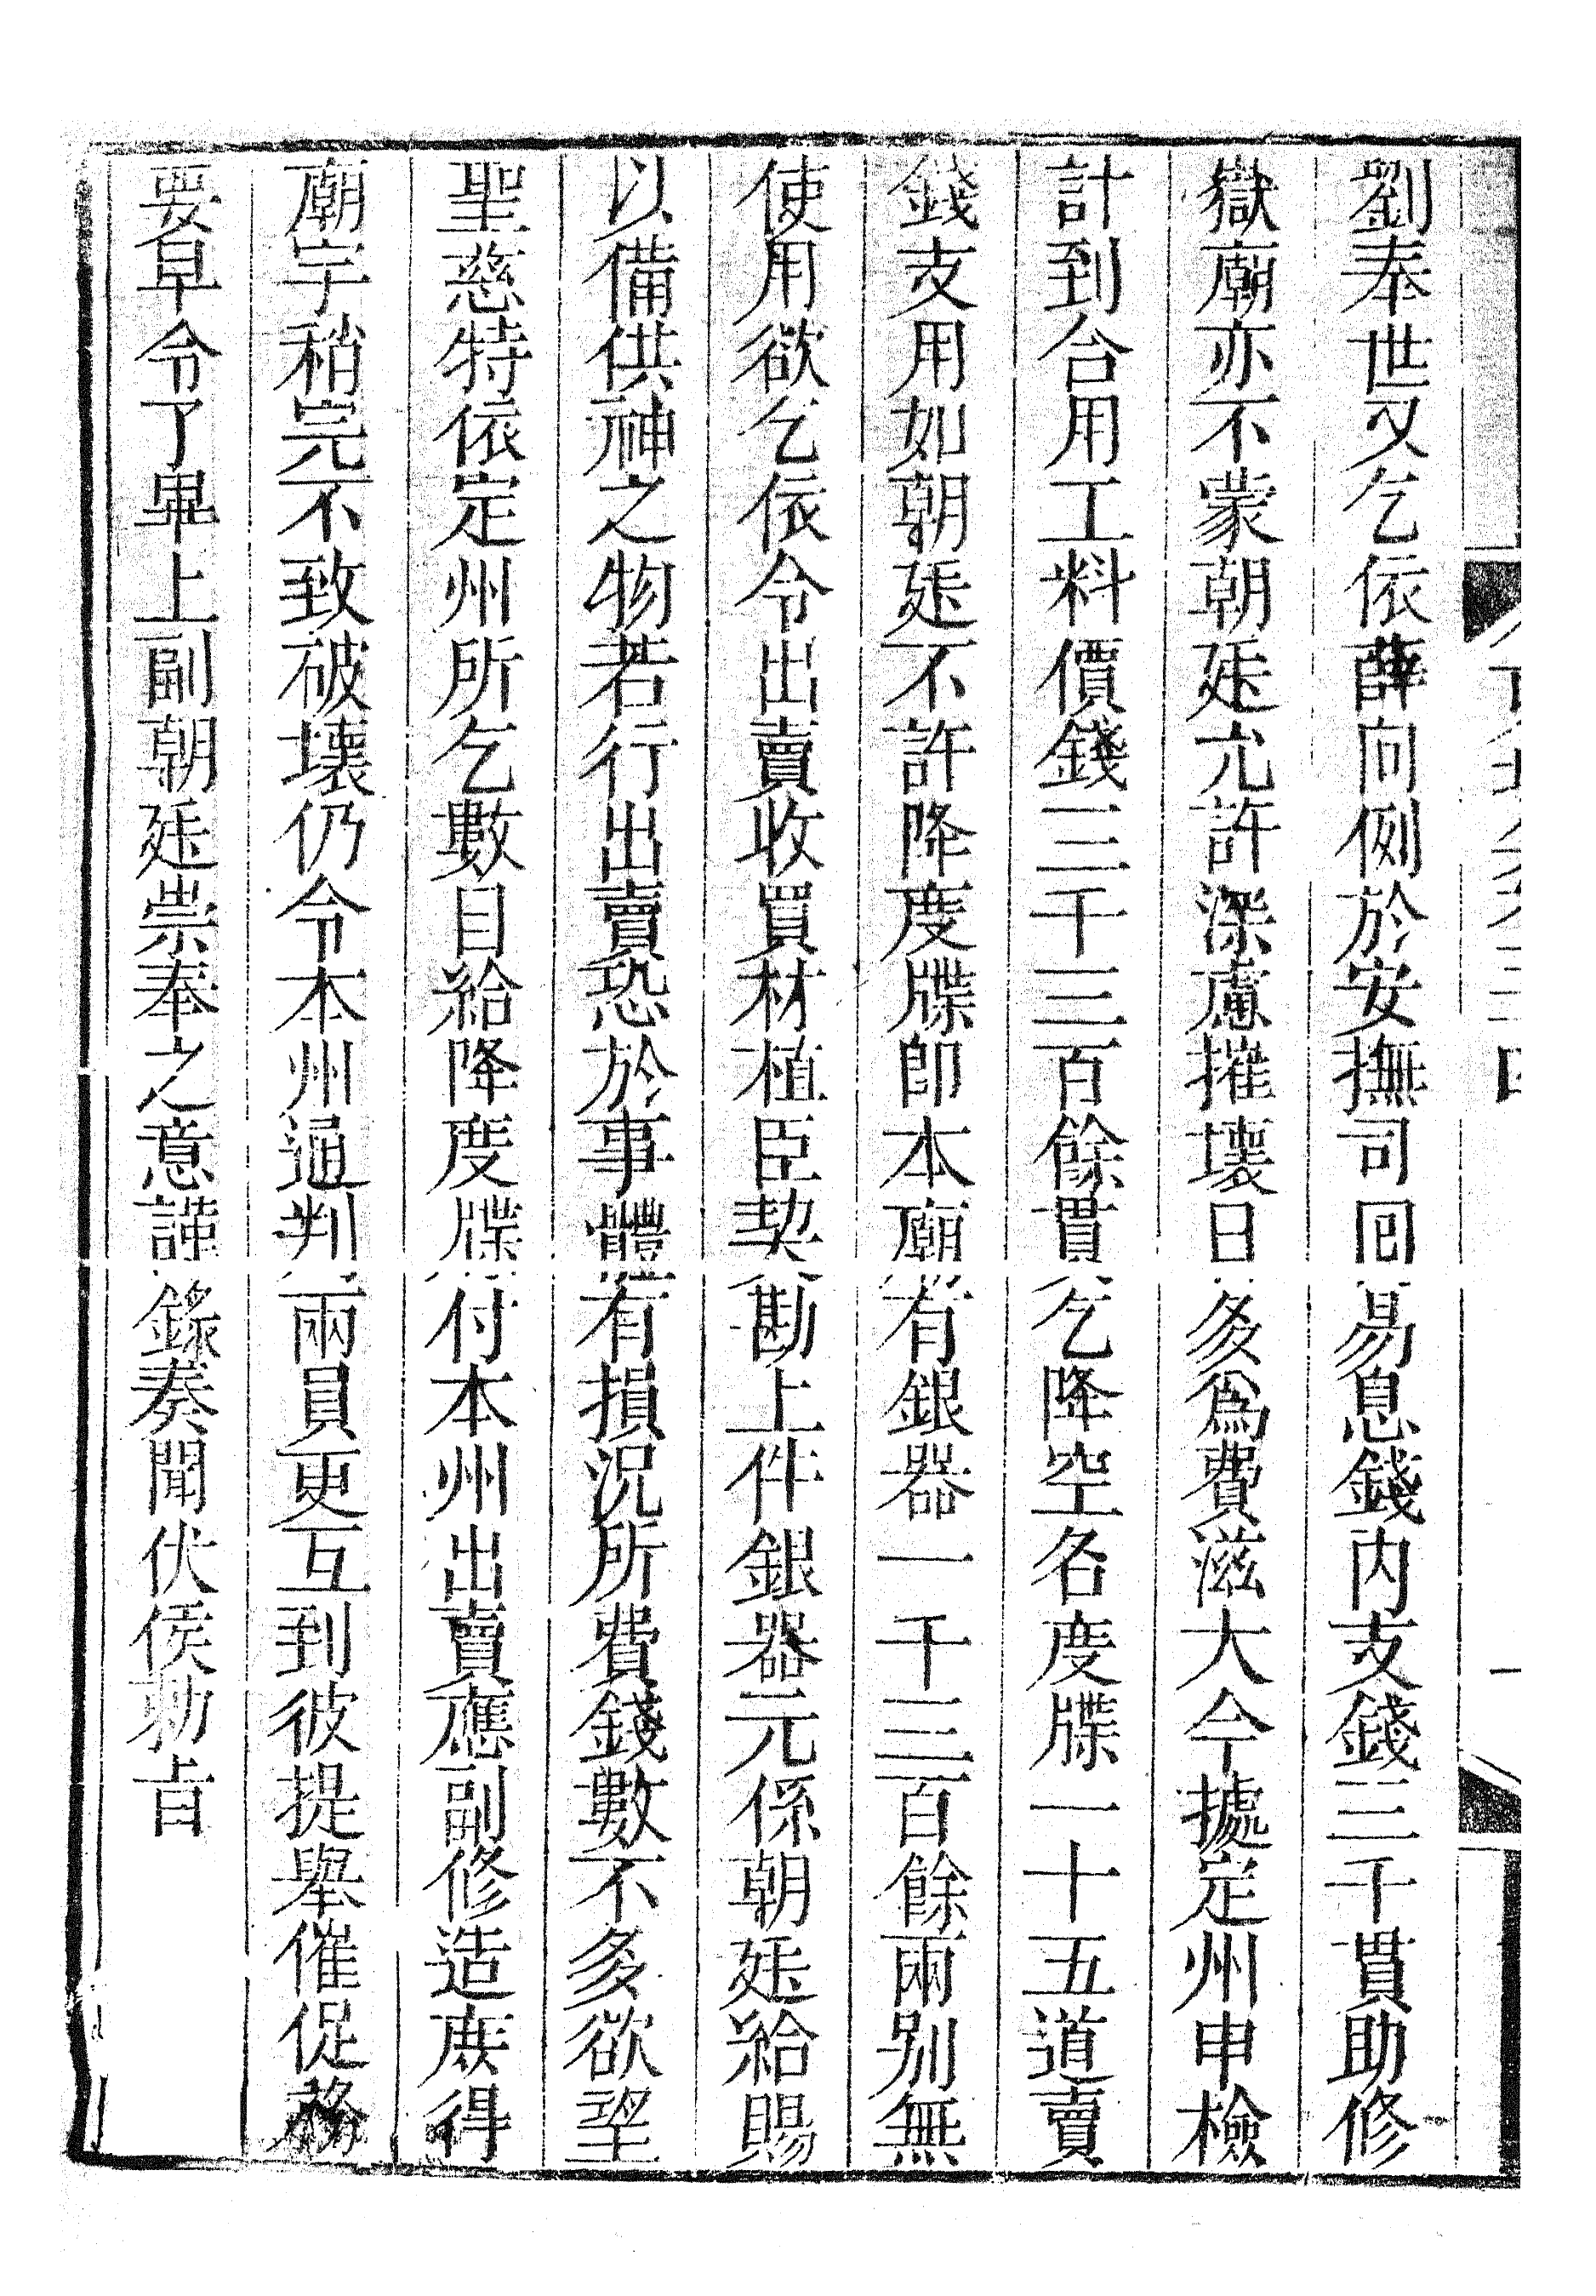 劉奉世又乞依薛向例於安撫司回易息錢内支錢三千貫助修
嶽廟亦不蒙朝廷允許深慮摧壞日多爲費滋大今據定州申檢
計到合用工料價錢三千三百餘貫乞降空名度牒一十五道賣
錢支用如朝廷不許降度牒即本廟有銀器一千三百餘兩别無
使用欲乞依令出賣收買材植臣契勘上件銀器元係朝廷給賜
以備供神之物若行出賣恐於事體有損况所費錢數不多欲望
聖慈特依定州所乞數目給降度牒付本州出賣應副修造庶得
廟宇稍完不致破壞仍令本州通判兩員更互到彼提舉催促務
要早令了畢上副朝廷崇奉之意謹錄奏聞伏侯勑旨